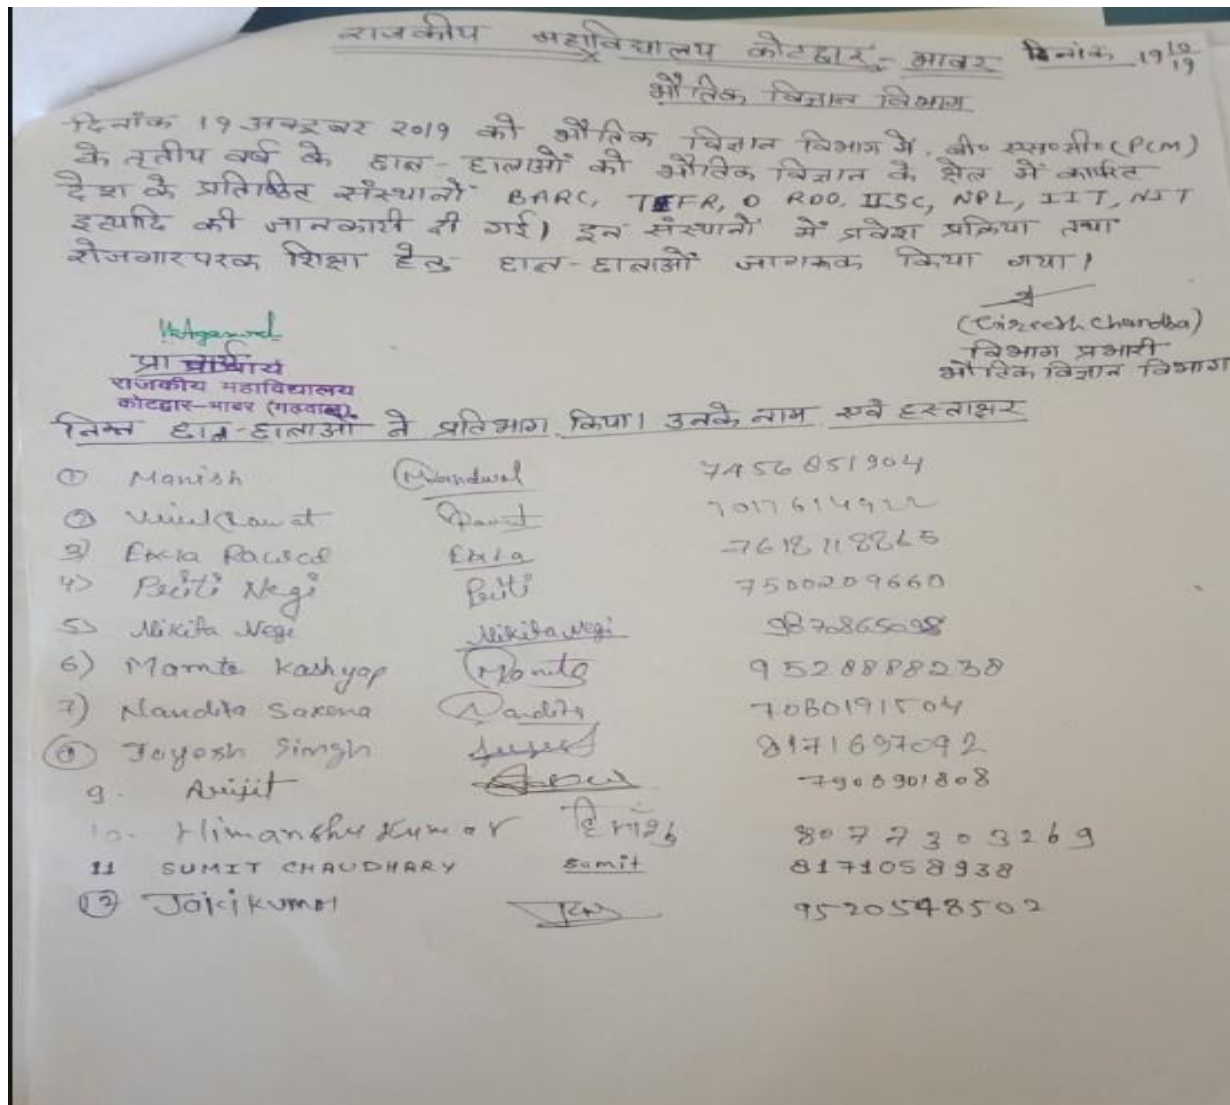 राजकीय महाविद्यालय कोटद्वार - भाबर दिनांक 19/10/19
भौतिक विज्ञान विभाग
दिनाँक 19 अक्टूबर 2019 को भौतिक विज्ञान विभाग में बी० एस० सी० (PCM)
के तृतीय वर्ष के छात्र - छात्राओं को भौतिक विज्ञान के क्षेत्र में कार्यरत
देश के प्रतिष्ठित संस्थानों BARC, TIFR, D RDO, IISC, NPL, IIT, NIT
इत्यादि की जानकारी दी गई। इन संस्थानों में प्रवेश प्रक्रिया तथा
रोजगारपरक शिक्षा हेतु छात्र - छात्राओं जागरूक किया गया।
प्राचार्य
राजकीय महाविद्यालय
कोटद्वार-भाबर (गढ़वाल)
Chandra)
विभाग प्रभारी
भौतिक विज्ञान विभाग
निम्न छात्र-छात्राओं ने प्रतिभाग किया। उनके नाम एवं हस्ताक्षर
① Manish 7456851904
② Rawat Rawat
3) Ekta Ekta
4) Priti Negi Priti 7500209660
5) Nikita Negi Nikita Negi
6) Mamta Kashyap Mamta 9528888238
7) Nandita Saxena Nandita
Singh 8171697092
9. Arijit 7908901808
10. Himanshu Kumar हिमाँशु 8077303269
11 SUMIT CHAUDHARY Sumit 8171058938
⑫ Kumar 9520548502